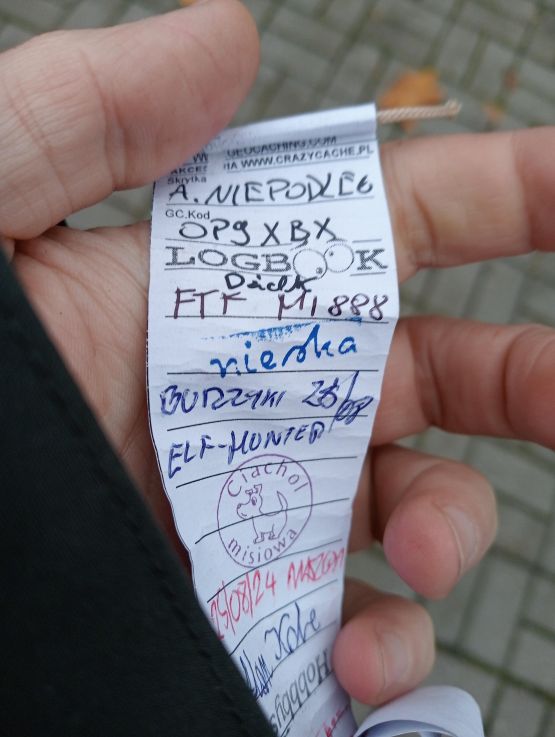 GEOCACHING.COM
NA WWW.CRAZYCACHE.PL
Skrytka
A. NIEPODLEG
GC.Kod
OP9XBX
LOGBOOK
FTF M1888
nieska
BURZYKI 25/08
ELF-HUNTER
Ciachol
misiowa
25/08/24
Kobe